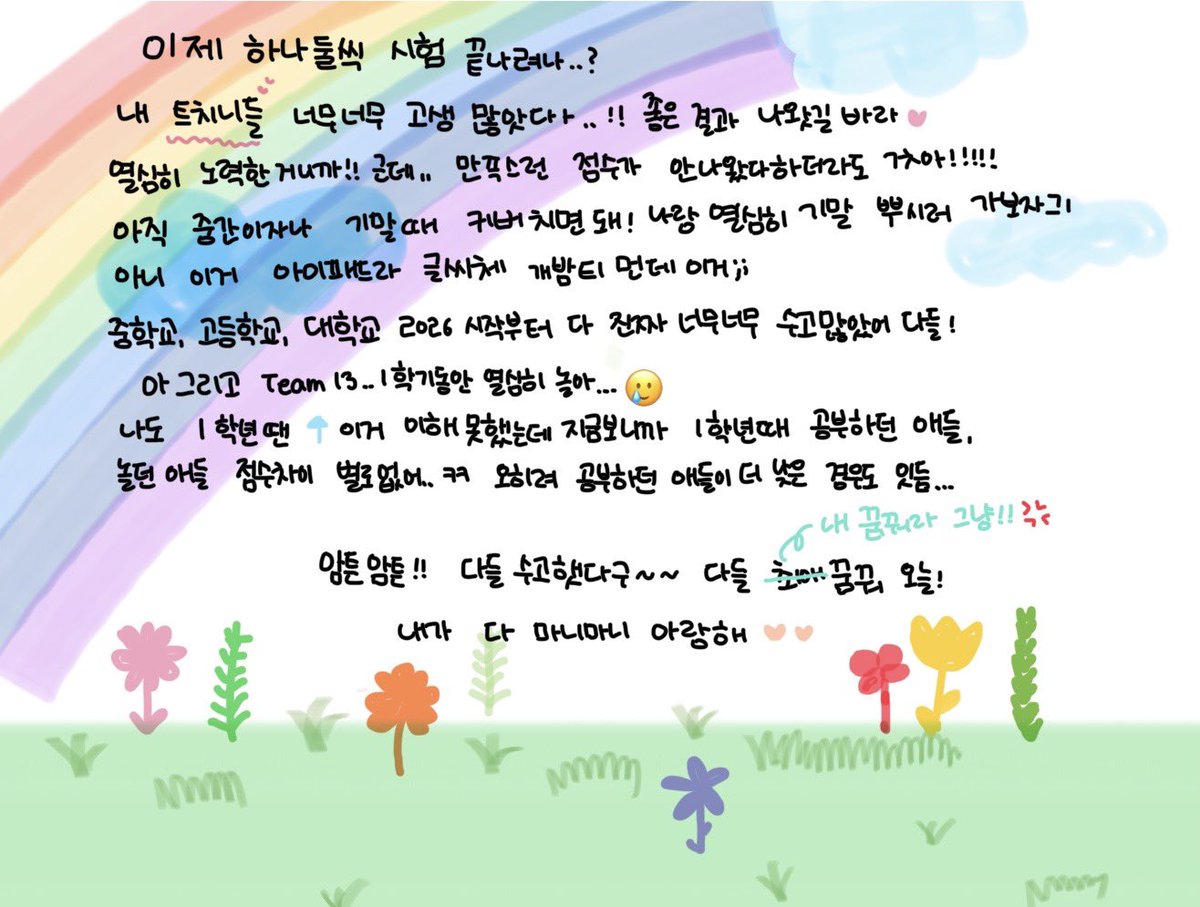 이제 하나둘씩 시험 끝나려나..?
내 트치니들 너무너무 고생 많앗다ㅏ..!! 좋은 결과 나왓길 바라
열심히 노력한거니까!! 군데.. 만족스런 점수가 안나왔다하더라도 갠차아!!!!!
아직 중간이자나 기말때 커버치면돼! 나랑 열심히 기말 뿌시러 가보자그
아니 이거 아이패드라 글씨체 개밤티 먼데이거;;
중학교, 고등학교, 대학교 2026 시작부터 다 진짜 너무너무 수고많았어 다들!
아 그리고 Team 13..1학기동안 열심히 놀아...🥲
나도 1학년땐 ↑ 이거 이해못했는데 지금보니까 1학년때 공부하던 애들,
놀던애들 점수차이 별로없어..ㅋㅋ 오히려 공부하던 애들이 더 낮은 경운도 잇듬...
내 꿈꿔라 그냥!!
암튼암튼!! 다들 수고햇다구~~ 다들 꿈꿔, 오늘!
내가 다 마니마니 아랑해